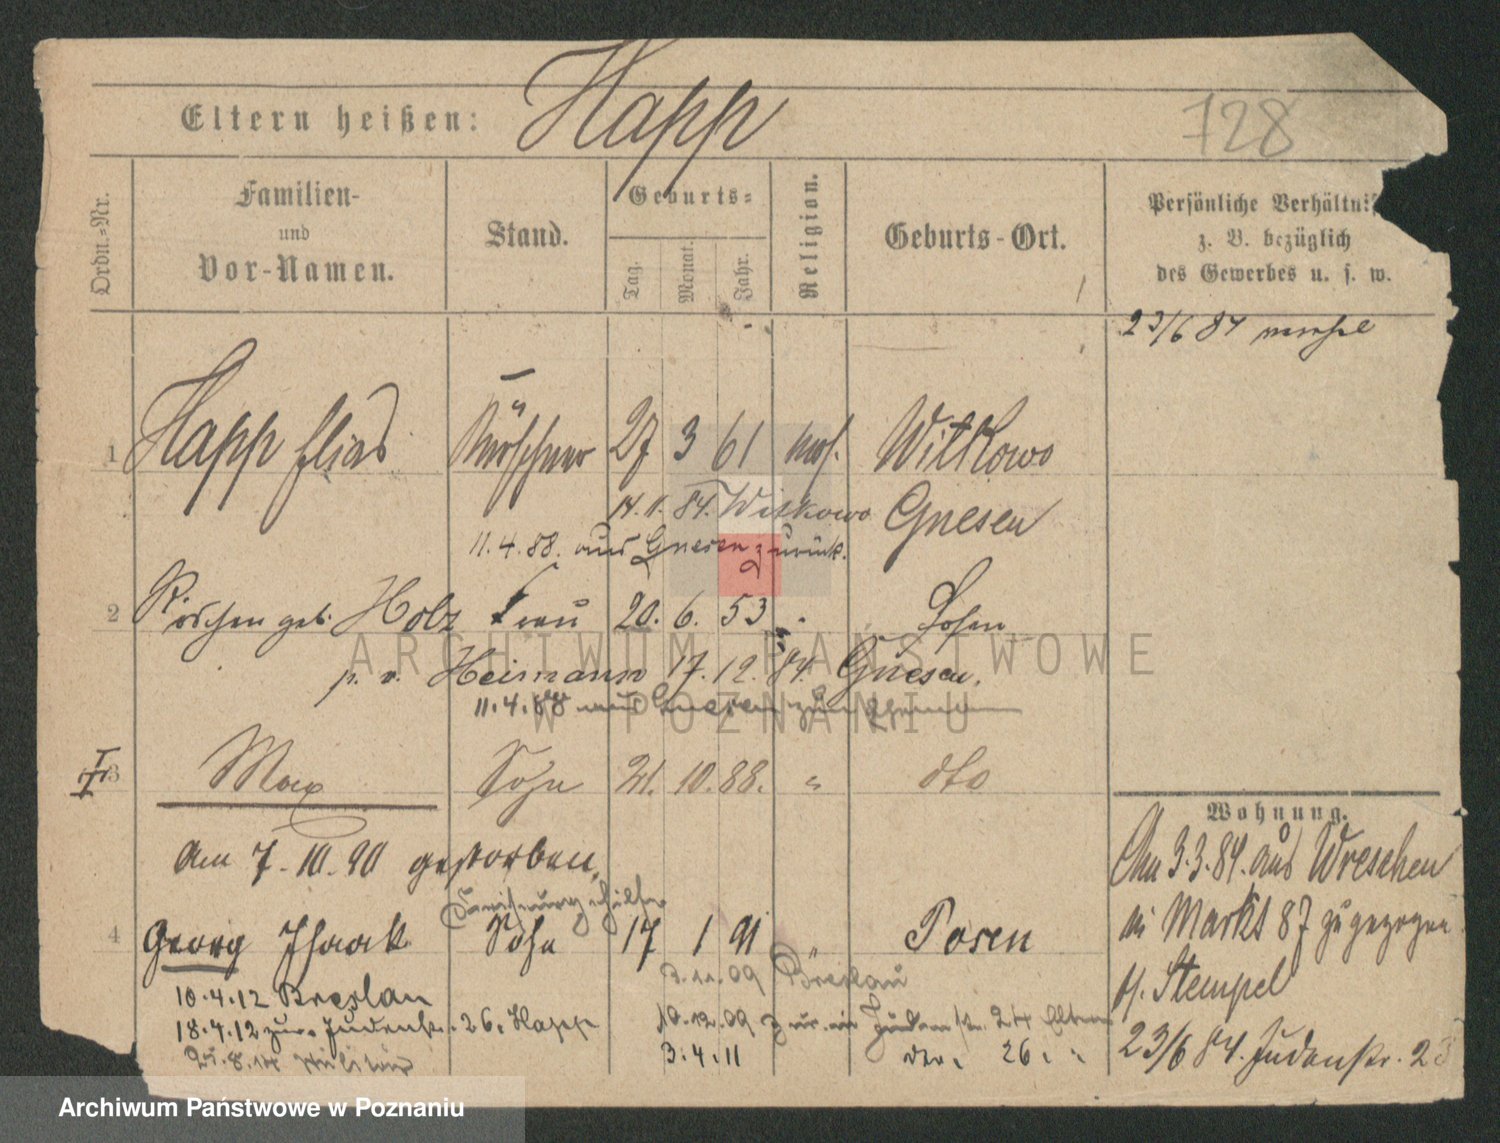 Eltern heißen: Happ
728
Ordn.-Nr.
Familien-
und
Vor-Namen.
Stand.
Geburts-
Tag.
Monat.
Jahr.
Religion.
Geburts-Ort.
Persönliche Verhältnis
z. B. bezüglich
des Gewerbes u. s. w.
23/6 84
1 Happ Elias Kürschner 27 3 61 mos. Witkowo
14. 11. 84. Witkowo Gnesen
11. 4. 88. aus Gnesen zurück.
2 Röschen geb. Holz Frau 20. 6. 53
p. v. Heimann 17. 12. 84. Gnesen.
11. 4. 88 aus Gnesen
3 Max Sohn 21. 10. 88. " dto
Am 7.10.90 gestorben.
Wohnung.
Am 3.3.84. aus Wreschen
in Markt 87 zugezogen
b/. Stempel
23/6 84. Judenstr. 23
4 Georg Isaak Sohn 17 1 91 " Posen
3.11.09 Breslau
10.4.12 Breslau
18.4.12 zur. Judenstr. 26, Happ
10.12.09 zur. in Judenstr. 24 Eltern
25.8.14 Militär
3.4.11 26. "
ARCHIWUM PAŃSTWOWE
W POZNANIU
Archiwum Państwowe w Poznaniu